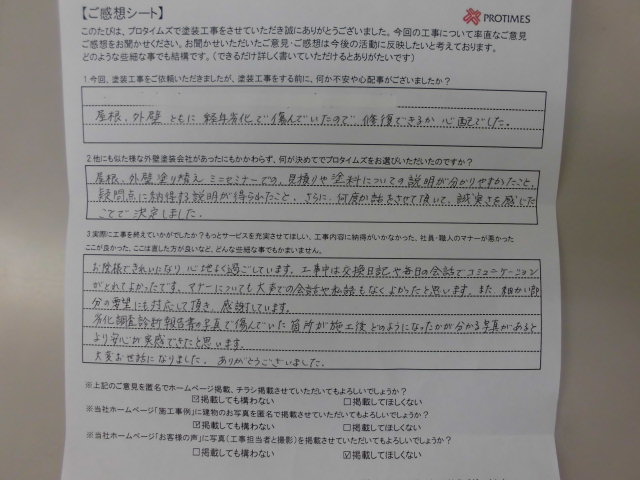 【ご感想シート】
PROTIMES
このたびは、プロタイムズで塗装工事をさせていただき誠にありがとうございました。今回の工事について率直なご意見
ご感想をお聞かせください。お聞かせいただいたご意見・ご感想は今後の活動に反映したいと考えております。
どのような些細な事でも結構です。(できるだけ詳しく書いていただけるとありがたいです)
1.今回、塗装工事をご依頼いただきましたが、塗装工事をする前に、何か不安や心配事がございましたか?
屋根、外壁 ともに 経年劣化で傷んでいたので 修復できるか 心配でした。
2.他にも似た様な外壁塗装会社があったにもかかわらず、何が決めてでプロタイムズをお選びいただいたのですか?
屋根、外壁塗り替え ミニセミナーでの、見積りや塗料についての説明が分かりやすかったこと、
疑問点に納得する説明が得られたこと、さらに、何度か話をさせて頂いて、誠実さを感じた
ことで 決定しました。
3.実際に工事を終えていかがでしたか?もっとサービスを充実させてほしい、工事内容に納得がいかなかった、社員・職人のマナーが悪かった
ここが良かった、ここは直した方が良いなど、どんな些細な事でもかまいません。
お陰様できれいになり 心地よく過ごしています。工事中は交換日記や毎日の会話でコミュニケーション
がとれてよかったです。マナーについても大声での会話や私語もなくよかったと思います。また 細かい部
分の要望にも対応して頂き、感謝しています。
劣化調査診断報告書の写真で傷んでいた箇所が施工後どのようになったかが分かる写真があると
より安心が実感できたと思います。
大変お世話になりました。ありがとうございました。
※上記のご意見を匿名でホームページ掲載、チラシ掲載させていただいてもよろしいでしょうか?
☑掲載しても構わない □掲載してほしくない
※当社ホームページ「施工事例」に建物のお写真を匿名で掲載させていただいてもよろしいでしょうか?
☑掲載しても構わない □掲載してほしくない
※当社ホームページ「お客様の声」に写真(工事担当者と撮影)を掲載させていただいてもよろしいでしょうか?
□掲載しても構わない ☑掲載してほしくない